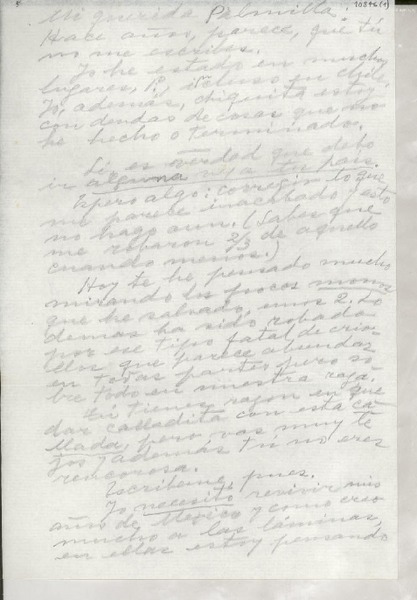 10546(1)
Mi querida Palmilla:
Hace años, parece, que tú
no me escribes.
Yo he estado en muchos
lugares, P., incluso en Chile.
Yo, además, chiquita estoy
con deudas de cosas que no
he hecho o terminado.
Sí es verdad que debo
ir alguna vez a tu país.
Espero algo: corregir lo que
me parece inacabado y esto
no hago aun. (Sabes que
me robaron 2/3 de aquello
cuando menos.)
Hoy te he pensado mucho
mirando los pocos
que he salvado, unos 2. Lo
demás ha sido robado
por ese tipo fatal de crio-
llos que parece abundar
en todas partes pero so-
bre todo en nuestra raza.
Tú tienes razón en que-
dar calladita con esta ca-
llada, pero vas muy le-
jos y además tú no eres
rencorosa.
Escríbeme, pues.
Yo necesito revivir mis
años de Mexico y como creo
mucho a las láminas,
en ellas estoy pensando